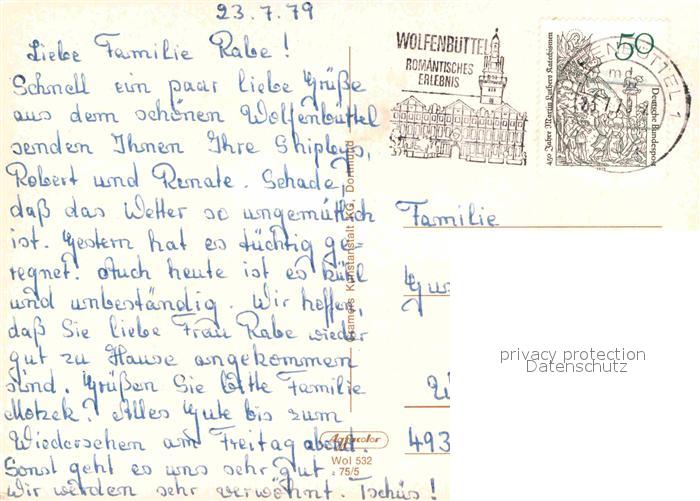 23.7.79
Liebe Familie Rabe!
Schnell ein paar liebe Grüße
aus dem schönen Wolfenbüttel
senden Ihnen Ihre Shipleys,
Robert und Renate. Schade,
daß das Wetter so ungemütlich
ist. Gestern hat es tüchtig ge-
regnet. Auch heute ist es kühl
und unbeständig. Wir hoffen,
daß Sie liebe Frau Rabe wieder
gut zu Hause angekommen
sind. Grüßen Sie bitte Familie
Motzek! Alles Gute bis zum
Wiedersehen am Freitag abend.
Sonst geht es uns sehr gut.
Wir werden sehr verwöhnt. Tschüs!
Cramers Kunstanstalt KG, Dortmund
Agfacolor
Wol 532
75/5
WOLFENBÜTTEL
ROMANTISCHES
ERLEBNIS
50
450 Jahre Martin Luthers Katechismen
Deutsche Bundespost
WOLFENBÜTTEL 1
23.7.79
Familie
493
privacy protection
Datenschutz